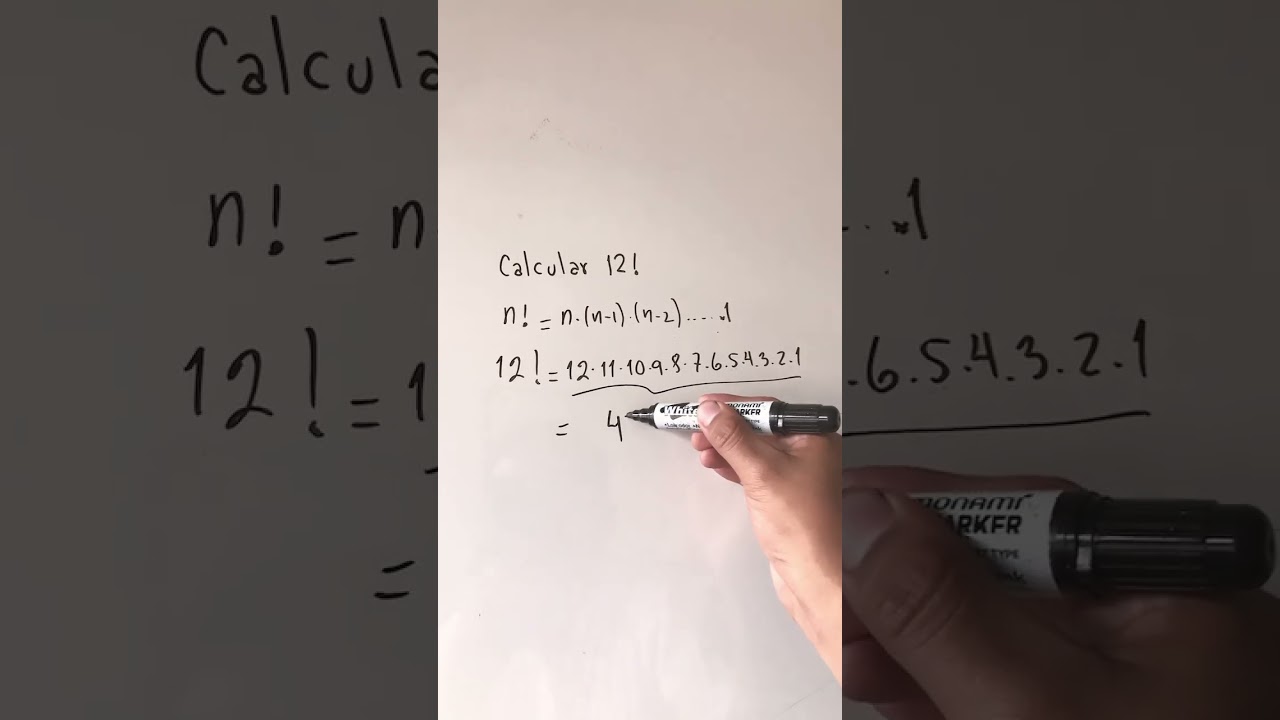 Calcular 12!
n! = n·(n-1)·(n-2).....1
12! = 12·11·10·9·8·7·6·5·4·3·2·1
= 4
White
MONAMI
MARKER